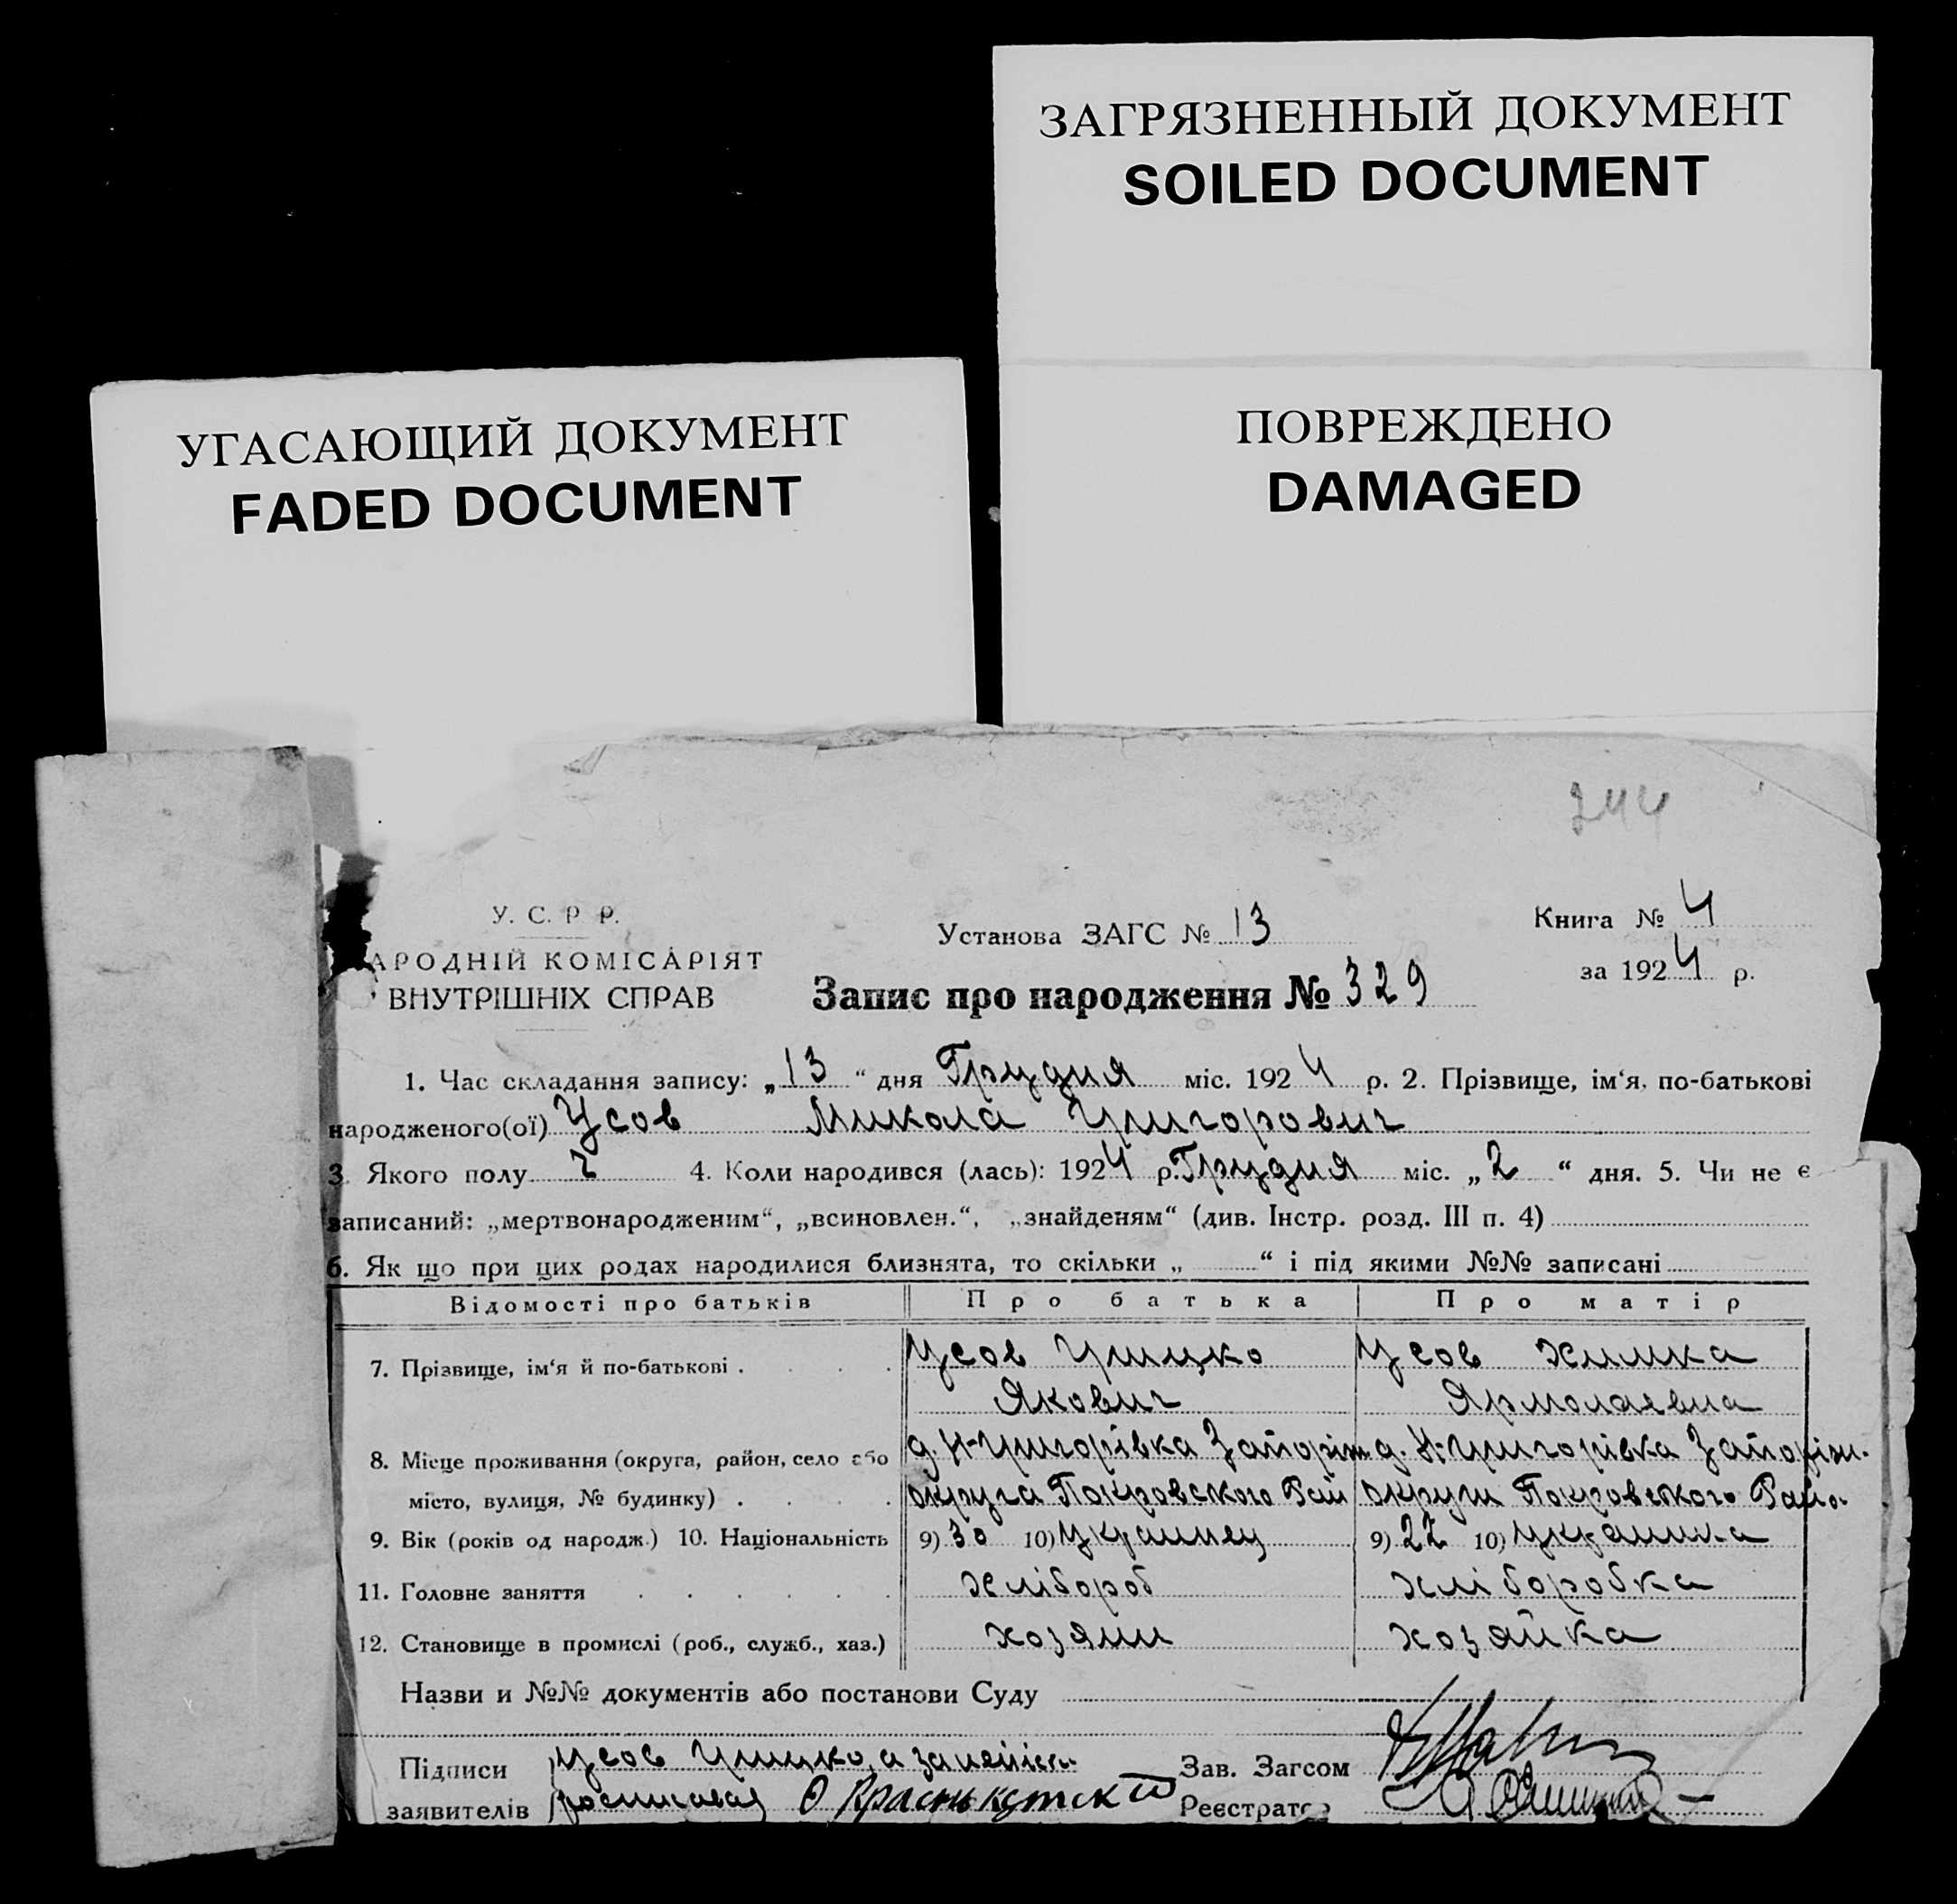 ЗАГРЯЗНЕННЫЙ ДОКУМЕНТ
SOILED DOCUMENT
УГАСАЮЩИЙ ДОКУМЕНТ
FADED DOCUMENT
ПОВРЕЖДЕНО
DAMAGED
244
У. С. Р Р.
АРОДНІЙ КОМІСАРІЯТ
ВНУТРІШНІХ СПРАВ
Установа ЗАГС № 13
Книга № 4
за 1924 р.
Запис про народження № 329
1. Час складання запису: „13“ дня Грудня міс. 1924 р. 2. Прізвище, ім‘я, по-батькові
народженого(ої) Усов Микола Григорович
3. Якого полу ч 4. Коли народився (лась): 1924 р. Грудня міс. „2“ дня. 5. Чи не є
записаний: „мертвонародженим“, „всиновлен.“, „знайденям“ (див. Інстр. розд. III п. 4)
6. Як що при цих родах народилися близнята, то скільки „ “ і під якими №№ записані
Відомості про батьків Про батька Про матір
7. Прізвище, ім‘я й по-батькові Усов Грицко Усов Химка
Якович Ярмолаевна
8. Місце проживання (округа, район, село або д. Н-Григорівка Запоріж д. Н-Григорівка Запоріж.
місто, вулиця, № будинку) округа Покровского Рай округи Покровського
9. Вік (років од народж.) 10. Національність 9) 30 10) Украинец 9) 22 10) Украинка
11. Головне заняття хлібороб хліборобка
12. Становище в промислі (роб., служб., хаз.) хозяин хозяйка
Назви и №№ документів або постанови Суду
Підписи Усов Грицко, а за Зав. Загсом
заявителів Реєстратор